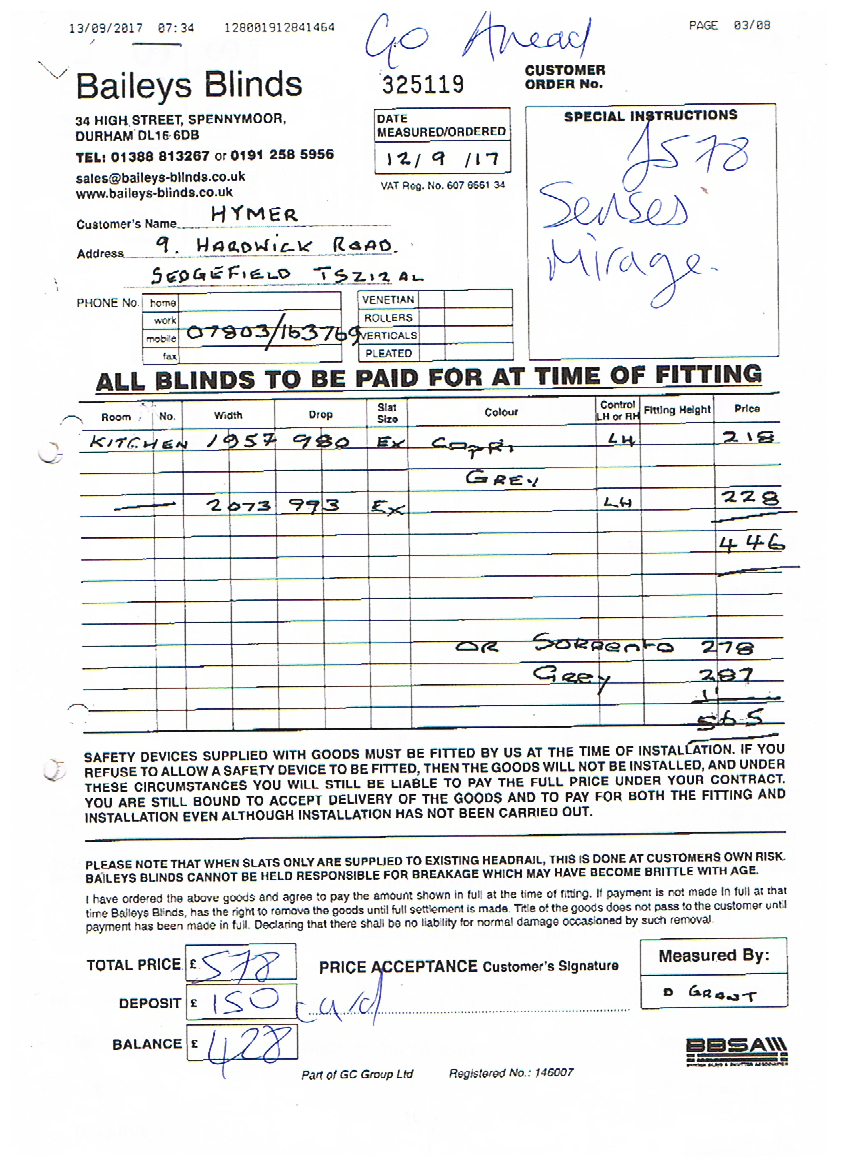 13/09/2017 07:34 128001912841464 PAGE 03/08
Go Ahead
Baileys Blinds
325119
CUSTOMER
ORDER No.
34 HIGH STREET, SPENNYMOOR,
DURHAM DL16 6DB
TEL: 01388 813267 or 0191 258 5956
sales@baileys-blinds.co.uk
www.baileys-blinds.co.uk
DATE
MEASURED/ORDERED
12/9/17
VAT Reg. No. 607 6661 34
SPECIAL INSTRUCTIONS
£578
Senses
Mirage.
Customer's Name HYMER
Address 9. HARDWICK ROAD.
SEDGEFIELD TS212AL
PHONE No. home
work
mobile 07803/163769
fax
VENETIAN
ROLLERS
VERTICALS
PLEATED
ALL BLINDS TO BE PAID FOR AT TIME OF FITTING
Room No. Width Drop Slat Size Colour Control LH or RH Fitting Height Price
KITCHEN 1957 980 Ex Capri LH 218
GREY
2073 993 Ex LH 228
446
OR SORRENTO 278
Grey 287
11
565
SAFETY DEVICES SUPPLIED WITH GOODS MUST BE FITTED BY US AT THE TIME OF INSTALLATION. IF YOU
REFUSE TO ALLOW A SAFETY DEVICE TO BE FITTED, THEN THE GOODS WILL NOT BE INSTALLED, AND UNDER
THESE CIRCUMSTANCES YOU WILL STILL BE LIABLE TO PAY THE FULL PRICE UNDER YOUR CONTRACT.
YOU ARE STILL BOUND TO ACCEPT DELIVERY OF THE GOODS AND TO PAY FOR BOTH THE FITTING AND
INSTALLATION EVEN ALTHOUGH INSTALLATION HAS NOT BEEN CARRIED OUT.
PLEASE NOTE THAT WHEN SLATS ONLY ARE SUPPLIED TO EXISTING HEADRAIL, THIS IS DONE AT CUSTOMERS OWN RISK.
BAILEYS BLINDS CANNOT BE HELD RESPONSIBLE FOR BREAKAGE WHICH MAY HAVE BECOME BRITTLE WITH AGE.
I have ordered the above goods and agree to pay the amount shown in full at the time of fitting. If payment is not made in full at that
time Baileys Blinds, has the right to remove the goods until full settlement is made. Title of the goods does not pass to the customer until
payment has been made in full. Declaring that there shall be no liability for normal damage occasioned by such removal.
TOTAL PRICE £ 578
PRICE ACCEPTANCE Customer's Signature
Measured By:
D GRANT
DEPOSIT £ 150 card
BALANCE £ 428
BBSA
Part of GC Group Ltd Registered No.: 146007